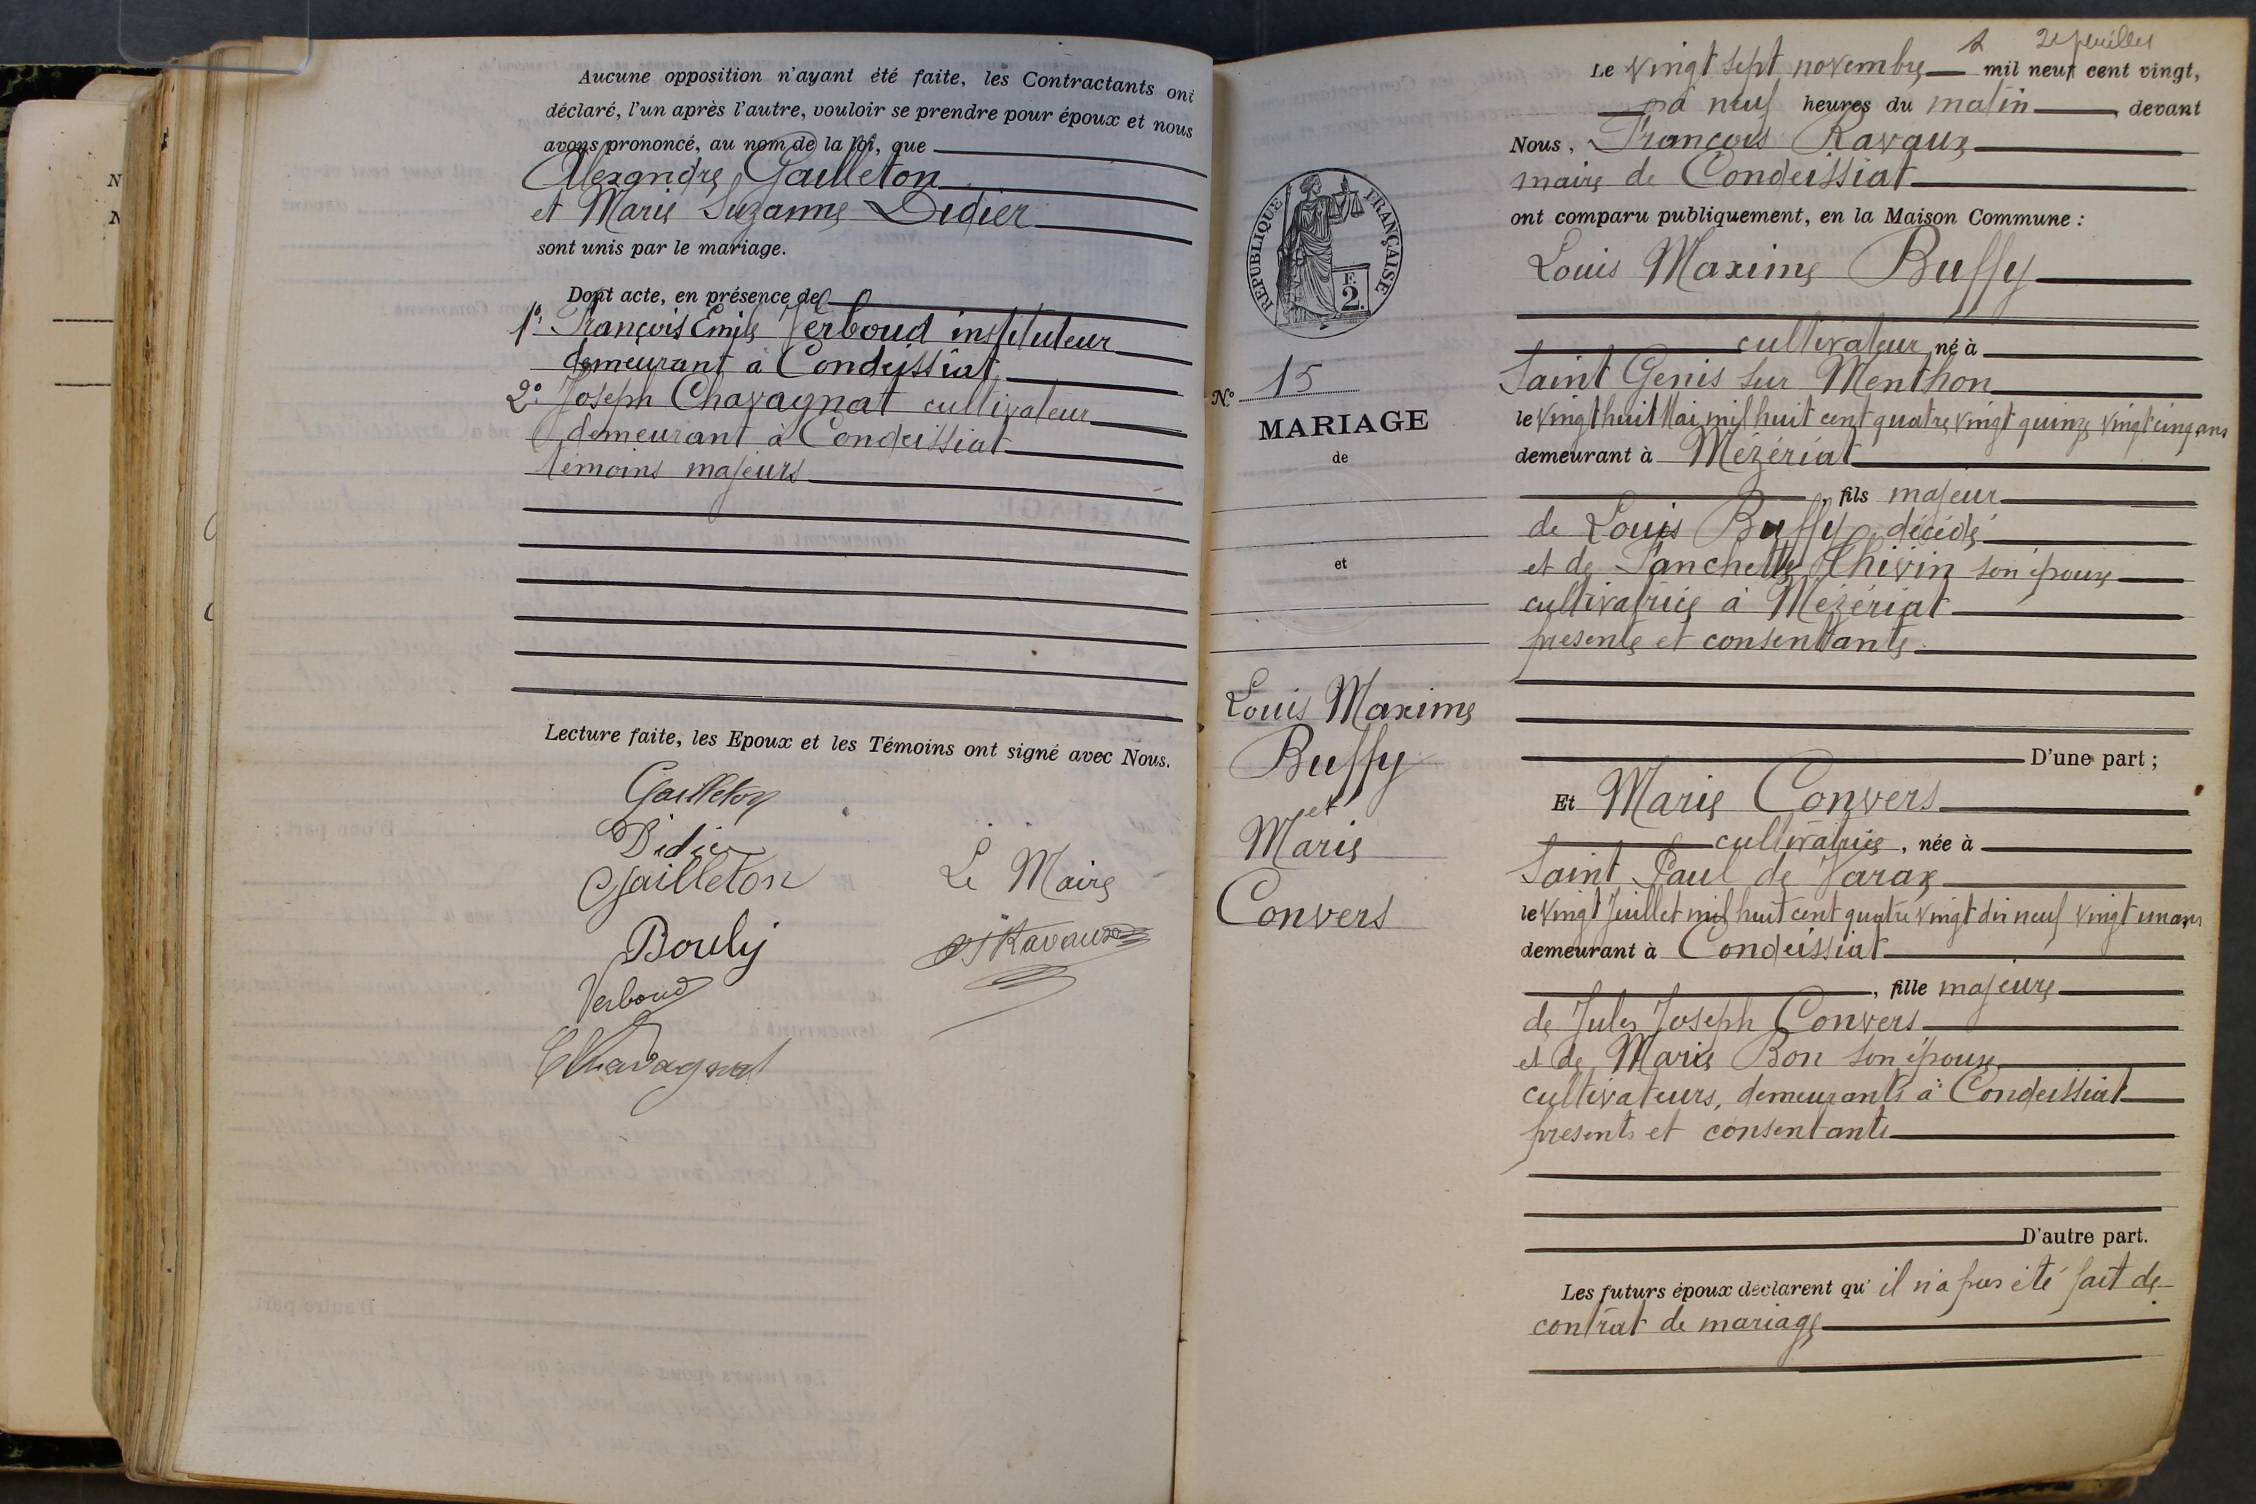 Aucune opposition n'ayant été faite, les Contractants ont
déclaré, l'un après l'autre, vouloir se prendre pour époux et nous
avons prononcé, au nom de la loi, que
Alexandre Gailleton
et Marie Suzanne Didier
sont unis par le mariage.
Dont acte, en présence de
1º François Emile Verboud instituteur
demeurant à Condeissiat
2º Joseph Chavagnat cultivateur
demeurant à Condeissiat
témoins majeurs
Lecture faite, les Epoux et les Témoins ont signé avec Nous.
Gailleton
Didier
Gailleton
Le Maire
Bouly
Ravaux
Verboud
Chavagnat
REPUBLIQUE FRANÇAISE
F.
2.
Nº 15
MARIAGE
de
et
Louis Maxime
Buffy
et
Marie
Convers
2 feuilles
Le vingt sept novembre mil neuf cent vingt,
à neuf heures du matin, devant
Nous, François Ravaux
maire de Condeissiat
ont comparu publiquement, en la Maison Commune :
Louis Maxime Buffy
cultivateur né à
Saint Genis sur Menthon
le vingt huit Mai mil huit cent quatre vingt quinze vingt cinq ans
demeurant à Mézériat
, fils majeur
de Louis Buffy décédé
et de Fanchette Thivin son épouse
cultivatrice à Mézériat
présente et consentante
D'une part ;
Et Marie Convers
cultivatrice, née à
Saint Paul de Varax
le vingt Juillet mil huit cent quatre vingt dix neuf vingt un ans
demeurant à Condeissiat
, fille majeure
de Jules Joseph Convers
et de Marie Bon son épouse
cultivateurs, demeurants à Condeissiat
présents et consentants
D'autre part.
Les futurs époux déclarent qu' il n'a pas été fait de
contrat de mariage